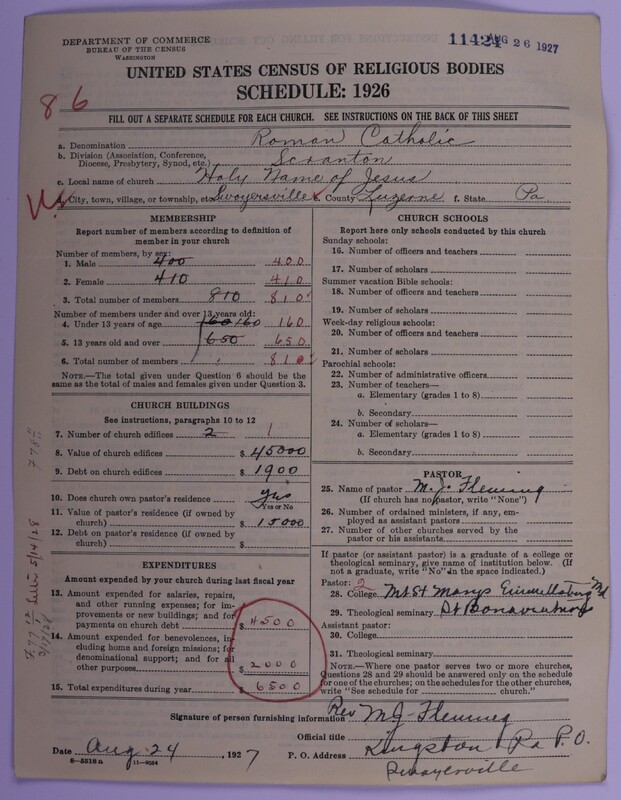 DEPARTMENT OF COMMERCE
BUREAU OF THE CENSUS
WASHINGTON
11424 AUG 26 1927
UNITED STATES CENSUS OF RELIGIOUS BODIES
SCHEDULE: 1926
86
FILL OUT A SEPARATE SCHEDULE FOR EACH CHURCH. SEE INSTRUCTIONS ON THE BACK OF THIS SHEET
a. Denomination Roman Catholic
b. Division (Association, Conference, Diocese, Presbytery, Synod, etc.) Scranton
c. Local name of church Holy Name of Jesus
d. City, town, village, or township, etc. Swoyersville e. County Luzerne f. State Pa
MEMBERSHIP
Report number of members according to definition of
member in your church
Number of members, by sex:
1. Male 400 400
2. Female 410 410
3. Total number of members 810 810
Number of members under and over 13 years old:
4. Under 13 years of age 160 160 160
5. 13 years old and over 650 650
6. Total number of members 810
NOTE.—The total given under Question 6 should be
same as the total of males and females given under Question 3.
CHURCH BUILDINGS
See instructions, paragraphs 10 to 12
7. Number of church edifices 2 1
8. Value of church edifices $ 45000
9. Debt on church edifices $ 1900
10. Does church own pastor's residence yes
Yes or No
11. Value of pastor's residence (if owned by
church) $ 15000
12. Debt on pastor's residence (if owned by
church) $
EXPENDITURES
Amount expended by your church during last fiscal year
13. Amount expended for salaries, repairs,
and other running expenses; for im-
provements or new buildings; and for
payments on church debt $ 4500
14. Amount expended for benevolences, in-
cluding home and foreign missions; for
denominational support; and for all
other purposes $ 2000
15. Total expenditures during year $ 6500
CHURCH SCHOOLS
Report here only schools conducted by this church
Sunday schools:
16. Number of officers and teachers
17. Number of scholars
Summer vacation Bible schools:
18. Number of officers and teachers
19. Number of scholars
Week-day religious schools:
20. Number of officers and teachers
21. Number of scholars
Parochial schools:
22. Number of administrative officers
23. Number of teachers—
a. Elementary (grades 1 to 8)
b. Secondary
24. Number of scholars—
a. Elementary (grades 1 to 8)
b. Secondary
PASTOR
25. Name of pastor M. J. Fleming
(If church has no pastor, write "None")
26. Number of ordained ministers, if any, em-
ployed as assistant pastors
27. Number of other churches served by the
pastor or his assistants
If pastor (or assistant pastor) is a graduate of a college or
theological seminary, give name of institution below. (If
not a graduate, write "No" in the space indicated.)
Pastor: 2
28. College Mt St Marys Emmettsburg Md
29. Theological seminary St Bonaventure
Assistant pastor:
30. College
31. Theological seminary
NOTE.—Where one pastor serves two or more churches,
Questions 28 and 29 should be answered only on the schedule
for one of the churches; on the schedules for the other churches,
write "See schedule for church."
Signature of person furnishing information Rev M J Fleming
Official title
Date Aug 24, 1927 P. O. Address Kingston Pa P. O.
Swoyerville
8—5518a 11—9054